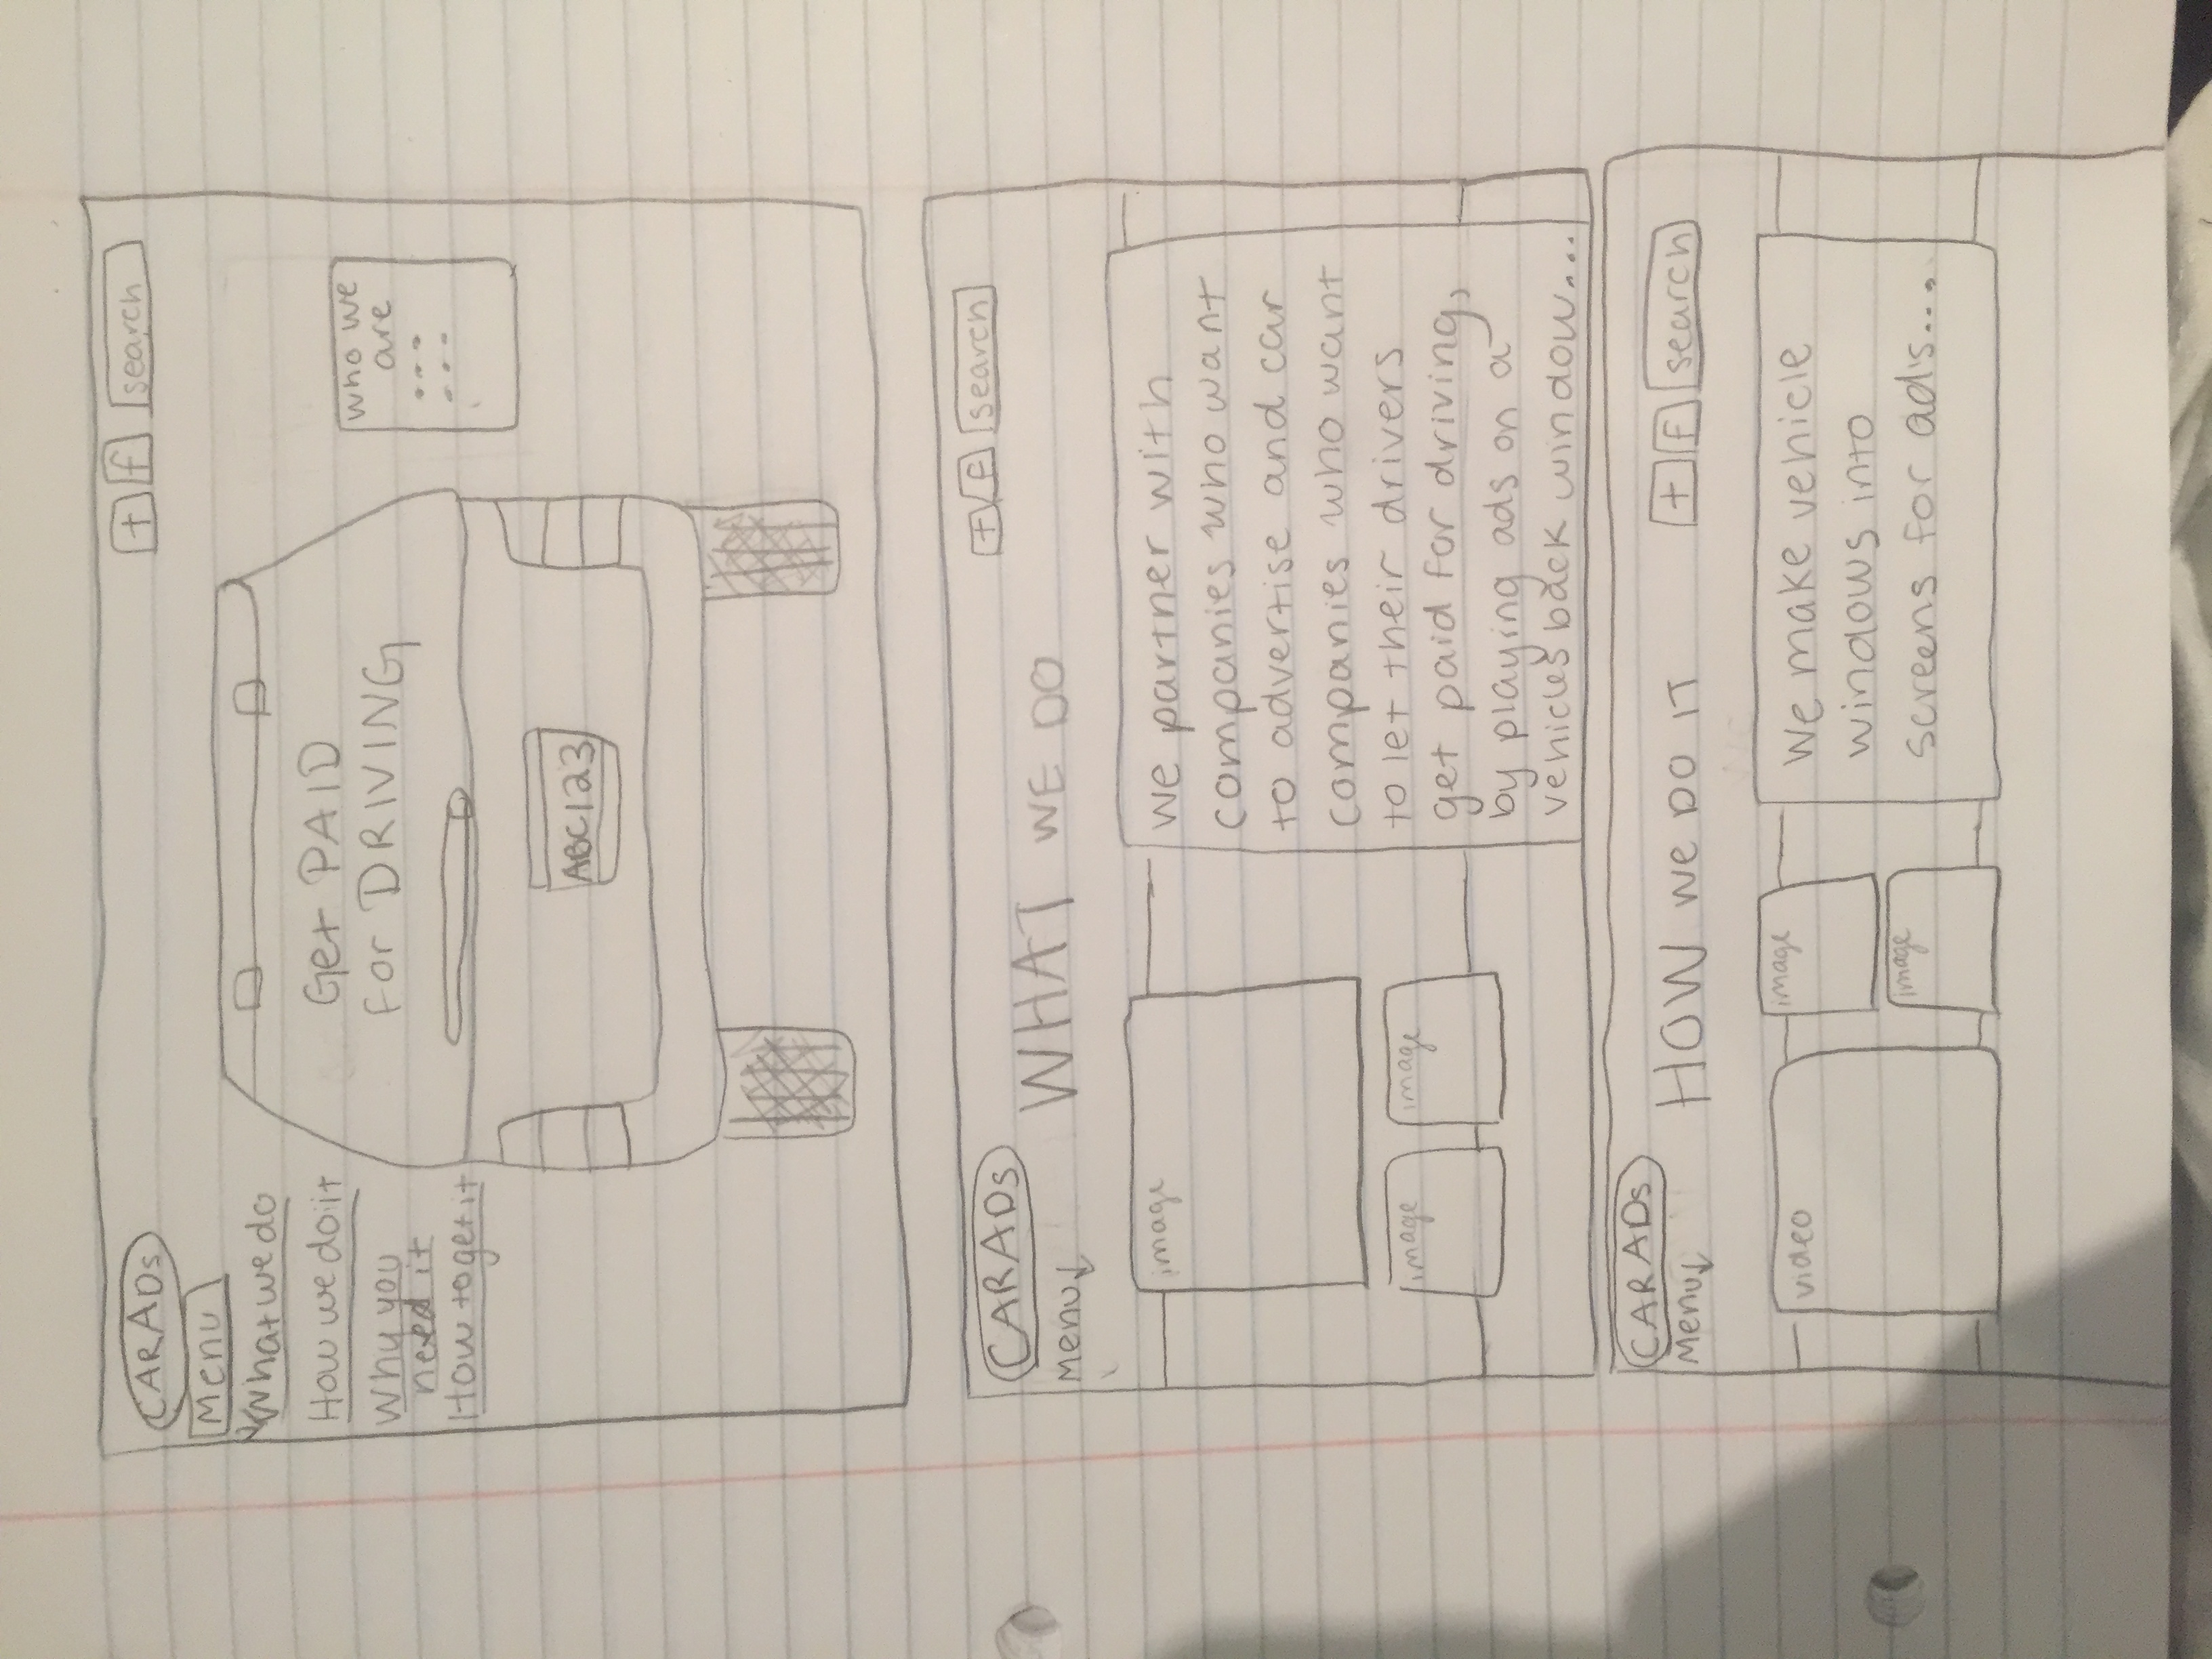 CARADs
t f search
Menu
What we do
How we do it
Why you
need it
How to get it
Get PAID
for DRIVING
who we
are
...
...
ABC123
CARADs
t f search
WHAT WE DO
Menu↓
image
image image
we partner with
companies who want
to advertise and car
companies who want
to let their drivers
get paid for driving,
by playing ads on a
vehicles back window...
CARADs
HOW WE DO IT
t f search
Menu↓
video
image
image
We make vehicle
windows into
screens for ads...